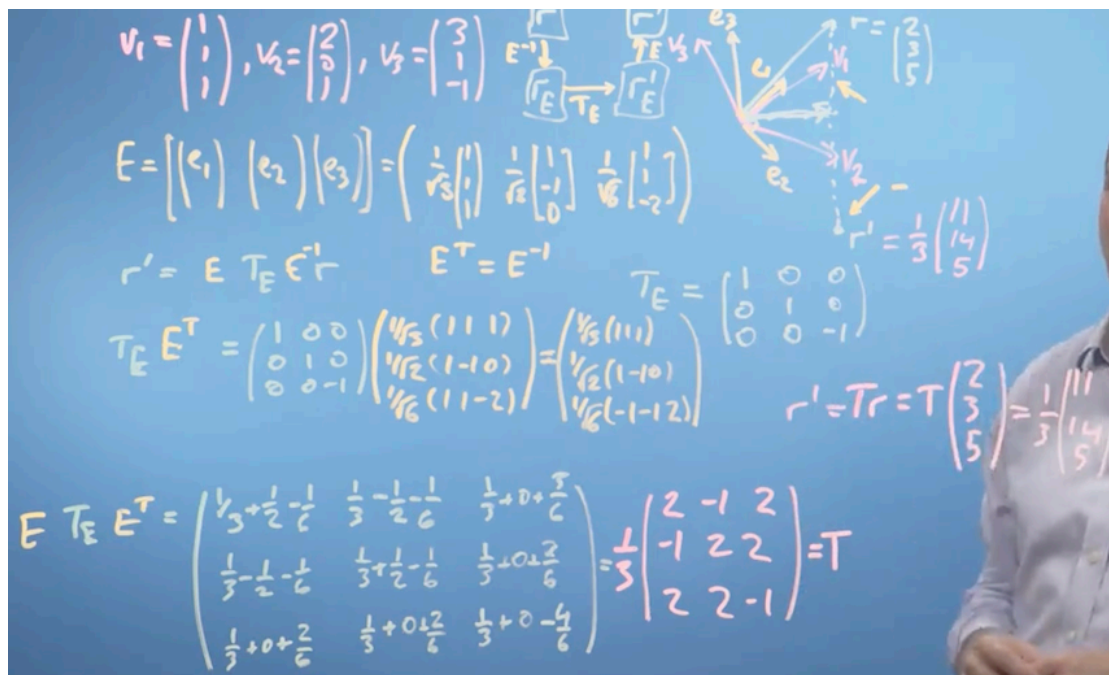 v₁ = (1 1 1), v₂ = (2 0 1), v₃ = (3 1 -1)
r r'
E⁻¹ ↓ ↑ E
r_E → r'_E
T_E
e₃ v₃ e₁ v₁ v₂ e₂
r = (2 3 5)
E = [(e₁) (e₂) (e₃)] = (1/√3 [1 1 1] 1/√2 [1 -1 0] 1/√6 [1 1 -2])
r' = 1/3 (11 14 5)
r' = E T_E E⁻¹ r E^T = E⁻¹
T_E = (1 0 0
0 1 0
0 0 -1)
T_E E^T = (1 0 0 (1/√3 (1 1 1) = (1/√3 (1 1 1)
0 1 0 1/√2 (1 -1 0) 1/√2 (1 -1 0)
0 0 -1) 1/√6 (1 1 -2)) 1/√6 (-1 -1 2))
r' = Tr = T (2 3 5) = 1/3 (11 14 5)
E T_E E^T = (1/3+1/2-1/6 1/3-1/2-1/6 1/3+0+2/6
1/3-1/2-1/6 1/3+1/2-1/6 1/3+0+2/6
1/3+0+2/6 1/3+0+2/6 1/3+0-4/6)
= 1/3 (2 -1 2
-1 2 2
2 2 -1) = T